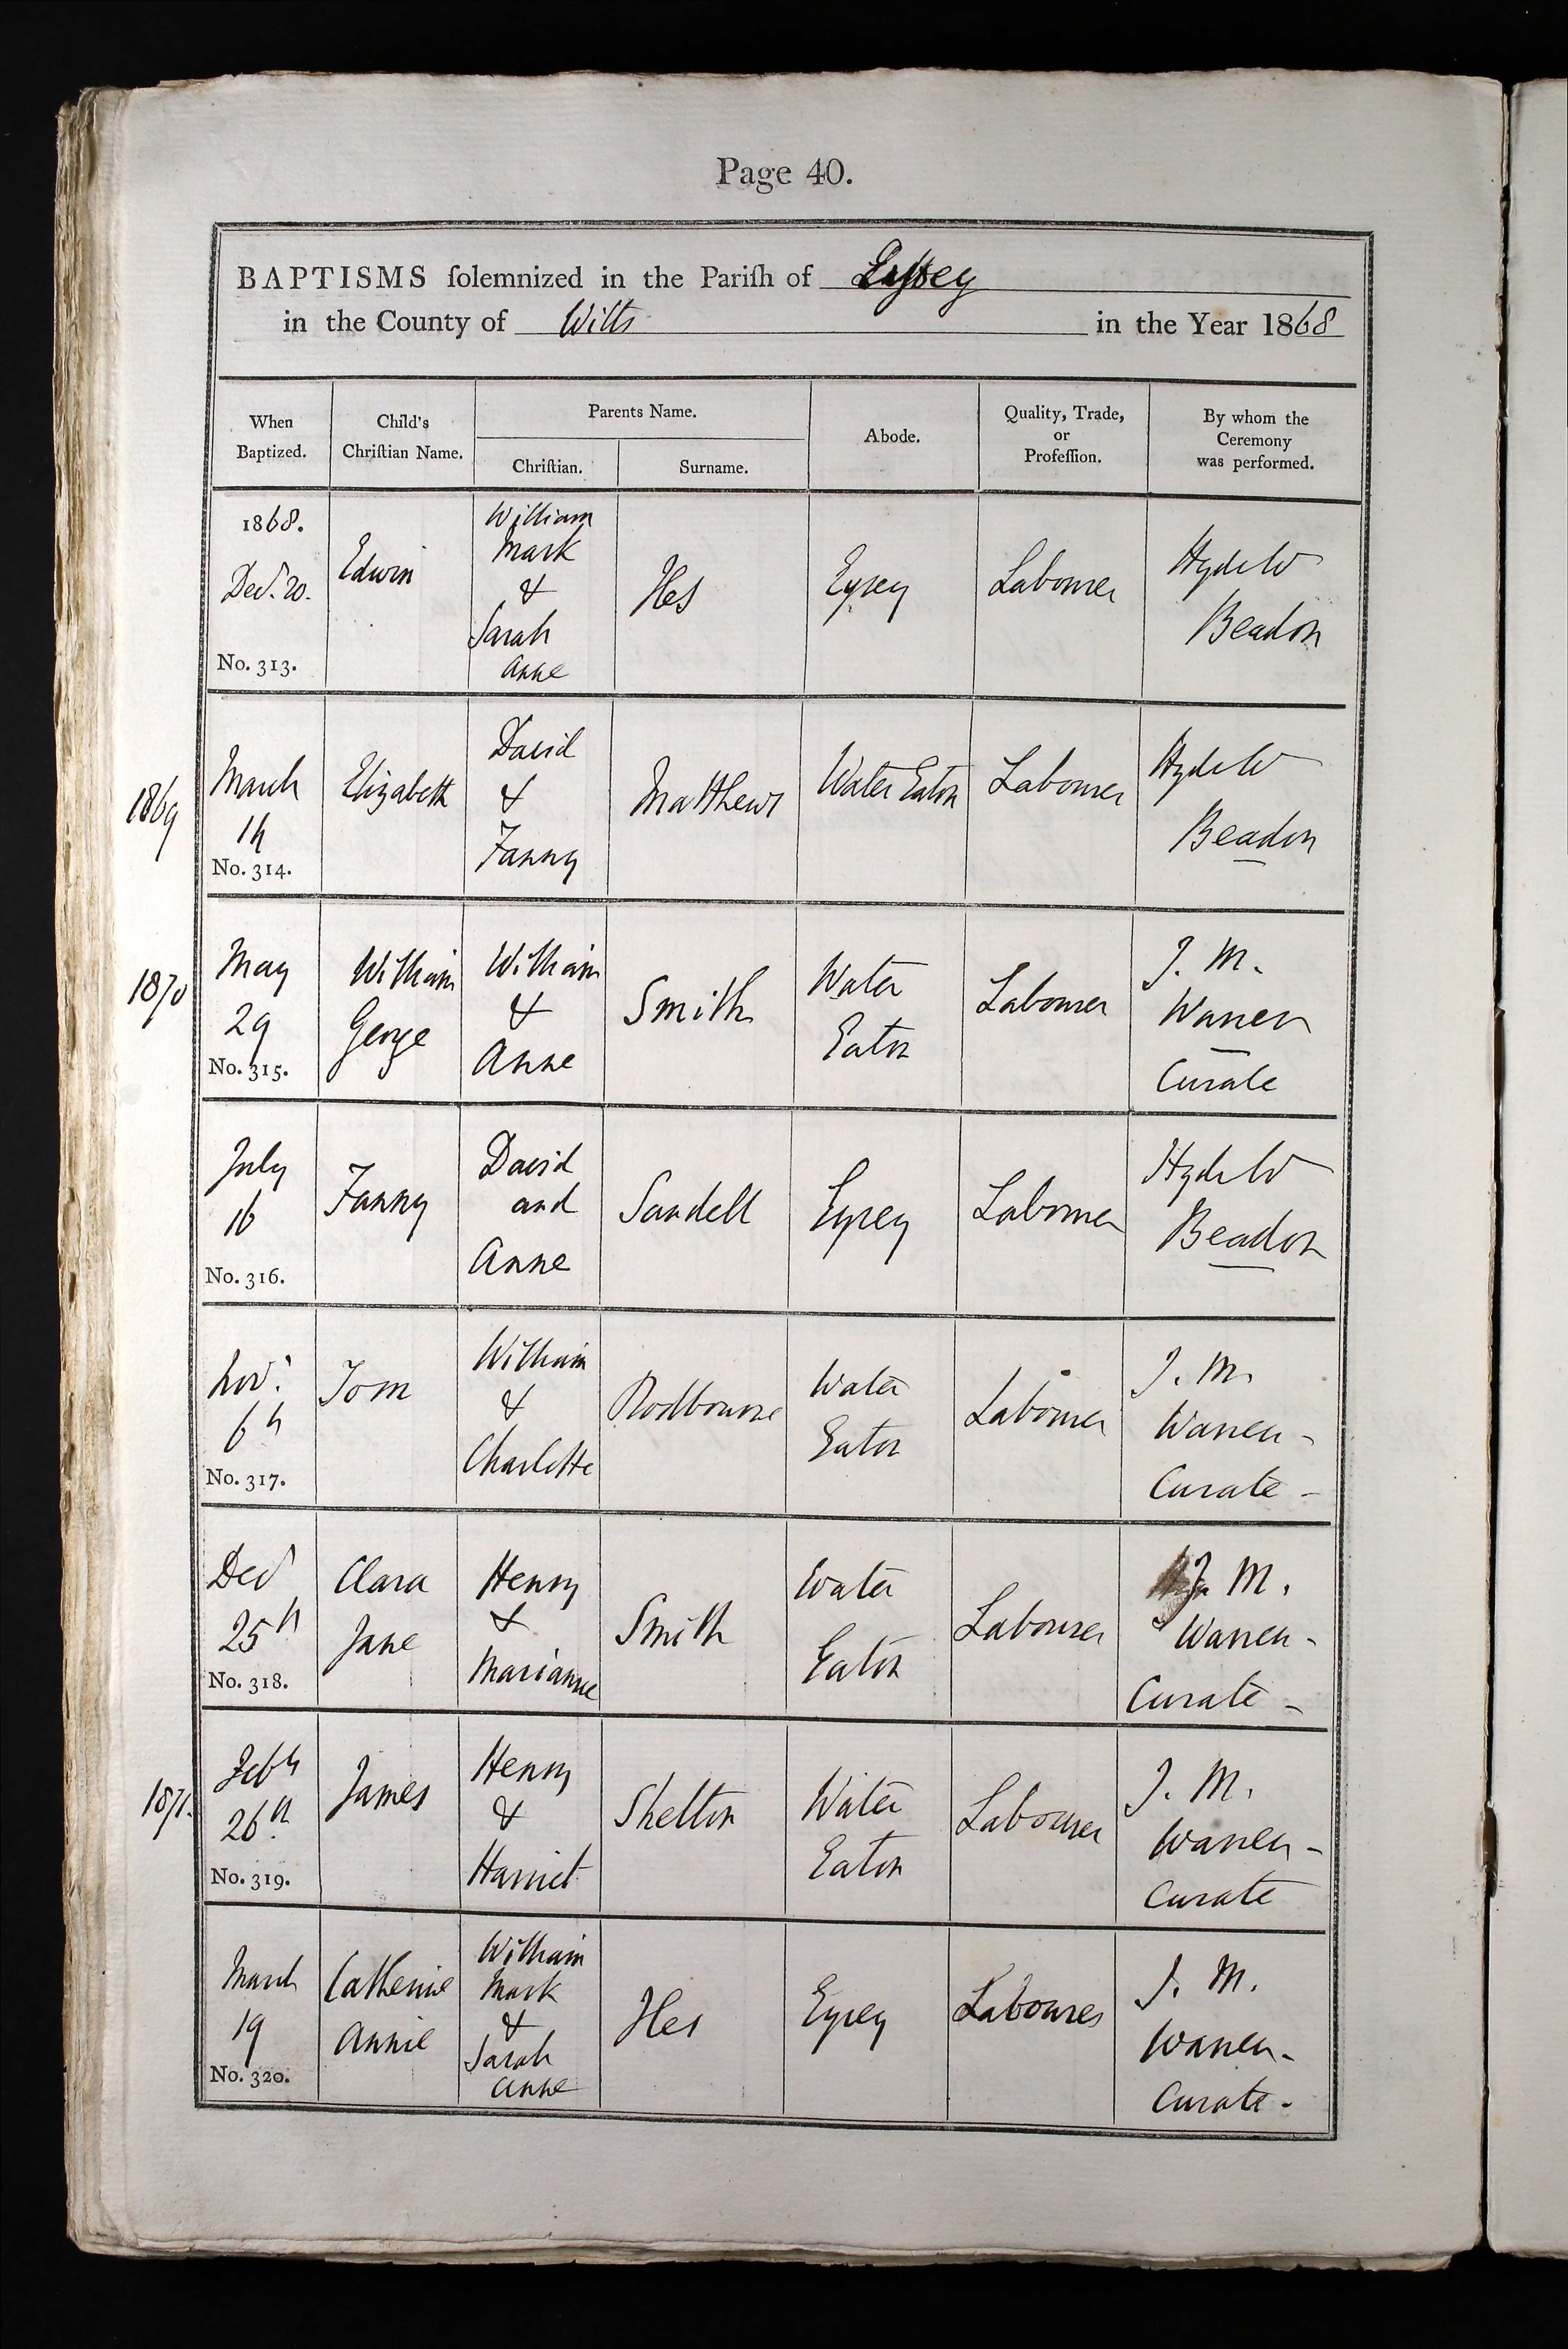 Page 40.
BAPTISMS ſolemnized in the Pariſh of
in the County of Wilts in the Year 1868
When
Baptized.
Child's
Chriſtian Name.
Parents Name.
Chriſtian.
Surname.
Abode.
Quality, Trade,
or
Profeſſion.
By whom the
Ceremony
was performed.
1868.
Decr. 20.
No. 313.
Edwin
William
Mark
&
Sarah
Anne
Iles
Eysey
Labourer
Hyde W
Beadon
1869
March
14
No. 314.
Elizabeth
David
&
Fanny
Matthews
Water Eaton
Labourer
Hyde W
Beadon
1870
May
29
No. 315.
William
George
William
&
Anne
Smith
Water
Eaton
Labourer
J. M.
Warren
Curate
July
16
No. 316.
Fanny
David
and
Anne
Sandell
Eysey
Labourer
Hyde W
Beadon
Novr.
6th
No. 317.
Tom
William
&
Charlotte
Rodbourne
Water
Eaton
Labourer
J. M.
Warren -
Curate -
Decr
25th
No. 318.
Clara
Jane
Henry
&
Marianne
Smith
Water
Eaton
Labourer
J. M.
Warren -
Curate -
1871.
Feby
26th
No. 319.
James
Henry
&
Harriet
Shelton
Water
Eaton
Labourer
J. M.
Warren -
Curate
March
19
No. 320.
Catherine
Annie
William
Mark
&
Sarah
Anne
Iles
Eysey
Labourer
J. M.
Warren -
Curate -